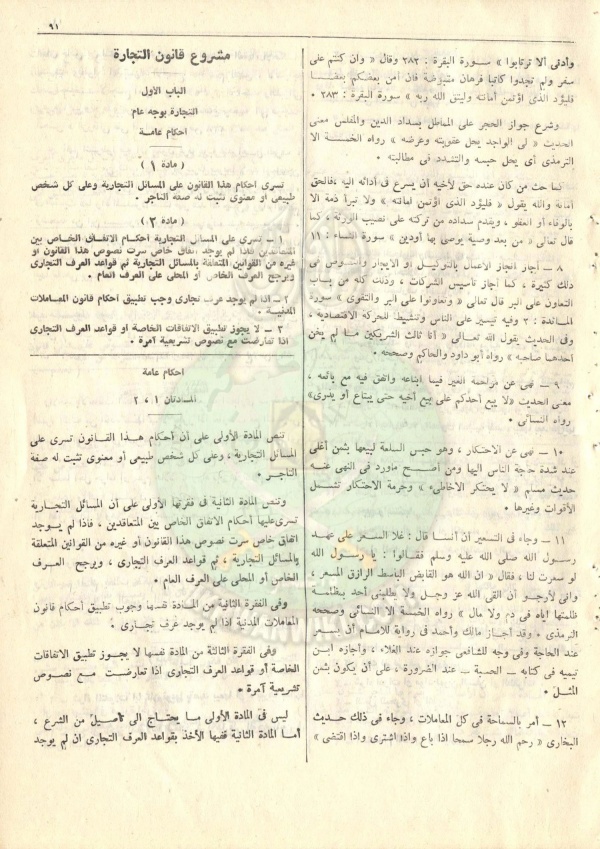 ٩١
وأدنى ألا ترتابوا » سورة البقرة : ٢٨٢ وقال « وان كنتم على
سفر ولم تجدوا كاتبا فرهان مقبوضة فان أمن بعضكم بعضا
فليؤد الذى اؤتمن أمانته وليتق الله ربه » سورة البقرة : ٢٨٣ ٠
وشرع جواز الحجر على المماطل بسداد الدين والمفلس معنى
الحديث « لى الواجد يحل عقوبته وعرضه » رواه الخمسة الا
الترمذى أى يحل حبسه والتشدد فى مطالبته ٠
كما حث من كان عنده حق لأخيه أن يسرع فى أدائه اليه ، فالحق
أمانة والله يقول « فليؤد الذى اؤتمن امانته » ولا تبرأ ذمة الا
بالوفاء أو العفو ، ويقدم سداده من تركته على نصيب الورثة ، كما
قال تعالى « من بعد وصية يوصى بها أودين » سورة النساء : ١١
٨ – أجاز انجاز الأعمال بالتوكيل أو الايجار والنصوص فى
ذلك كثيرة ، كما أجاز تأسيس الشركات ، وذلك كله من باب
التعاون على البر قال تعالى « وتعاونوا على البر والتقوى » سورة
المائدة : ٢ وفيه تيسير على الناس وتنشيط للحركة الاقتصادية ،
وفى الحديث يقول الله تعالى « أنا ثالث الشريكين ما لم يخن
احدهما صاحبه » رواه أبو داود والحاكم وصححه ٠
٩ – نهى عن مزاحمة الغير فيما ابتاعه واتفق فيه مع بائعه ،
معنى الحديث «لا يبع أحدكم على بيع أخيه حتى يبتاع أو يدرى»
رواه النسائى ٠
١٠ – نهى عن الاحتكار ، وهو حبس السلعة لبيعها بثمن أغلى
عند شدة حاجة الناس اليها ومن أصح ماورد فى النهى عنه
حديث مسلم « لا يحتكر الا خاطىء » وحرمة الاحتكار تشمل
الأقوات وغيرها ٠
١١ – وجاء فى التسعير أن أنسا قال : غلا السعر على عهد
رسول الله صلى الله عليه وسلم فقالوا : يا رسول الله
لو سعرت لنا ، فقال « ان الله هو القابض الباسط الرازق المسعر ،
وانى لأرجو أن القى الله عز وجل ولا يطلبنى أحد بمظلمة
ظلمتها اياه فى دم ولا مال » رواه الخمسة الا النسائى وصححه
الترمذى ٠ وقد أجاز مالك وأحمد فى رواية للامام أن يسعر
عند الحاجة وفى وجه للشافعى جوازه عند الغلاء ، وأجازه ابن
تيمية فى كتابه – الحسبة – عند الضرورة ، على أن يكون بثمن
المثل ٠
١٢ – أمر بالسماحة فى كل المعاملات ، وجاء فى ذلك حديث
البخارى « رحم الله رجلا سمحا اذا باع واذا اشترى واذا اقتضى »
مشروع قانون التجارة
الباب الأول
التجارة بوجه عام
احكام عامة
( مادة ١ )
تسرى احكام هذا القانون على المسائل التجارية وعلى كل شخص
طبيعى أو معنوى تثبت له صفة التاجر ٠
( مادة ٢ )
١ – تسرى على المسائل التجارية أحكام الاتفاق الخاص بين
المتعاقدين فاذا لم يوجد اتفاق خاص سرت نصوص هذا القانون أو
غيره من القوانين المتعلقة بالمسائل التجارية ثم قواعد العرف التجارى
ويرجح العرف الخاص أو المحلى على العرف العام ٠
٢ – اذا لم يوجد عرف تجارى وجب تطبيق احكام قانون المعاملات
المدنية ٠
٣ – لا يجوز تطبيق الاتفاقات الخاصة او قواعد العرف التجارى
اذا تعارضت مع نصوص تشريعية آمرة ٠
احكام عامة
المادتان ١ ، ٢
تنص المادة الأولى على أن أحكام هذا القانون تسرى على
المسائل التجارية ، وعلى كل شخص طبيعى أو معنوى تثبت له صفة
التاجر ٠
وتنص المادة الثانية فى فقرتها الأولى على أن المسائل التجارية
تسرى عليها أحكام الاتفاق الخاص بين المتعاقدين ، فاذا لم يوجد
اتفاق خاص سرت نصوص هذا القانون أو غيره من القوانين المتعلقة
بالمسائل التجارية ، ثم قواعد العرف التجارى ، ويرجح العرف
الخاص أو المحلى على العرف العام ٠
وفى الفقرة الثانية من المادة نفسها وجوب تطبيق أحكام قانون
المعاملات المدنية اذا لم يوجد عرف تجارى ٠
وفى الفقرة الثالثة من المادة نفسها لا يجوز تطبيق الاتفاقات
الخاصة أو قواعد العرف التجارى اذا تعارضت مع نصوص
تشريعية آمرة ٠
ليس فى المادة الأولى ما يحتاج الى تأصيل من الشرع ،
أما المادة الثانية ففيها الأخذ بقواعد العرف التجارى ان لم يوجد